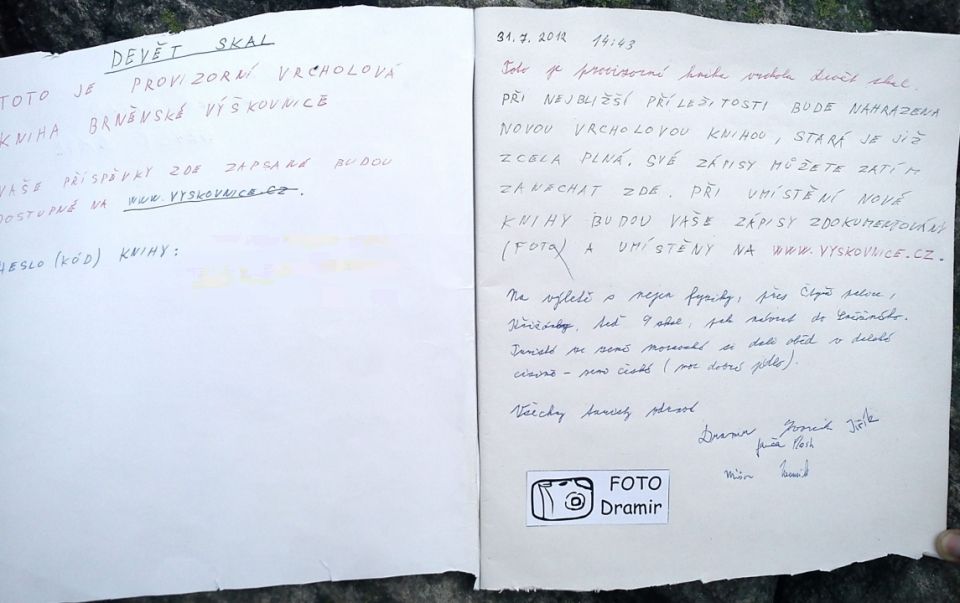 DEVĚT SKAL
TOTO JE PROVIZORNÍ VRCHOLOVÁ
KNIHA BRNĚNSKÉ VÝŠKOVNICE
VAŠE PŘÍSPĚVKY ZDE ZAPSANÉ BUDOU
DOSTUPNÉ NA WWW.VYSKOVNICE.CZ.
HESLO (KÓD) KNIHY:
31.7.2012 14:43
Toto je provizorní kniha vrcholu Devět skal.
PŘI NEJBLIŽŠÍ PŘÍLEŽITOSTI BUDE NAHRAZENA
NOVOU VRCHOLOVOU KNIHOU, STARÁ JE JIŽ
ZCELA PLNÁ. SVÉ ZÁPISY MŮŽETE ZATÍM
ZANECHAT ZDE. PŘI UMÍSTĚNÍ NOVÉ
KNIHY BUDOU VAŠE ZÁPISY ZDOKUMENTOVÁNY
(FOTO) A UMÍSTĚNY NA WWW.VYSKOVNICE.CZ.
Na výletě s nejen fyziky, přes Čtyři palice,
teď 9 skal, pak návrat do
Turisté ze země moravské si dali oběd v daleké
cizině - zemi české (moc dobré jídlo).
Všechny turisty zdraví
Dramir Jiřík
FOTO
Dramir